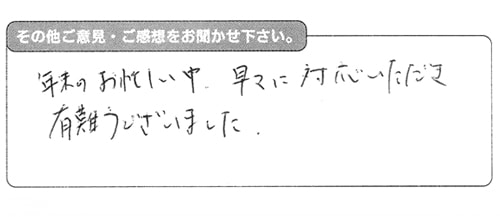 その他ご意見・ご感想をお聞かせ下さい。
年末のお忙しい中、早々に対応いただき
有難うございました.